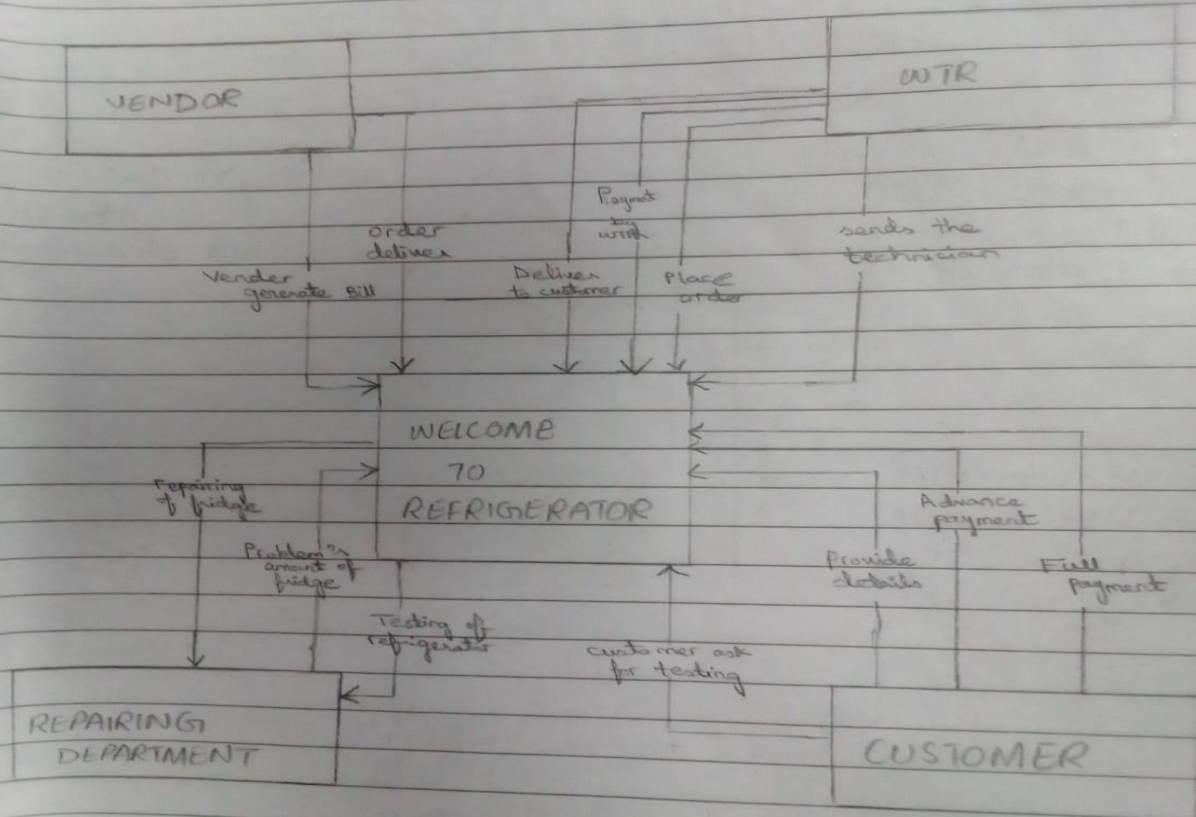 VENDOR
WTR
Paymet
by
WTR
order
deliver
sends the
technician
Vender
generate Bill
Deliver
to customer
Place
order
WELCOME
TO
REFRIGERATOR
repairing
of fridge
Advance
payment
Problem
amount of
fridge
Provide
details
Full
payment
Testing of
refrigerator
customer ask
for testing
REPAIRING
DEPARTMENT
CUSTOMER